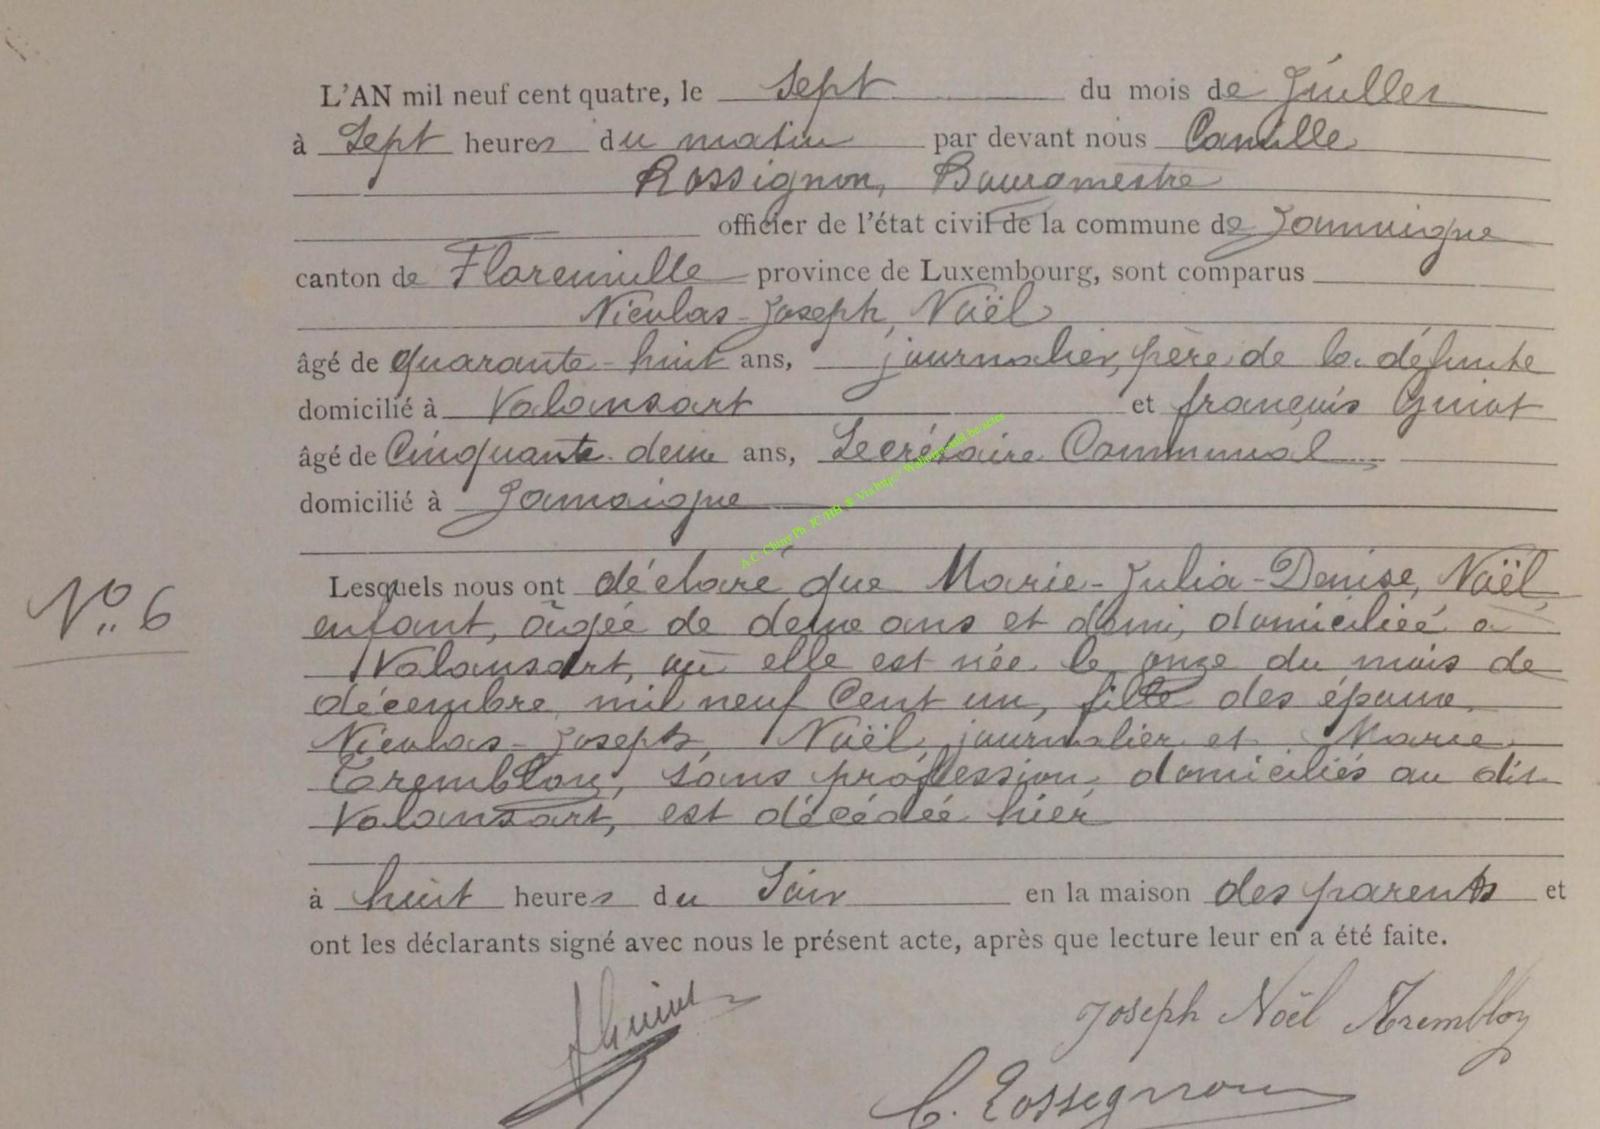 L'AN mil neuf cent quatre, le Sept du mois de Juillet
à Sept heures du matin par devant nous Camille
Rossignon, Bourgmestre
officier de l'état civil de la commune de Jamoigne
canton de Florenville province de Luxembourg, sont comparus
Nicolas-Joseph, Noël
âgé de quarante-huit ans, journalier, père de la défunte
domicilié à Valansart et françois Guiot
âgé de Cinquante-deux ans, Secrétaire Communal
domicilié à Jamoigne
Lesquels nous ont déclaré que Marie-Julia-Denise, Noël
N° 6
enfant, âgée de deux ans et demi, domiciliée à
Valansart, où elle est née le onze du mois de
décembre mil neuf Cent un, fille des époux
Nicolas-Joseph, Noël, journalier et Marie
Trembloy, sans profession, domiciliés au dit
Valansart, est décédée hier
à huit heures du Soir en la maison des parents et
ont les déclarants signé avec nous le présent acte, après que lecture leur en a été faite.
Joseph Noël Trembloy
C. Rossignon